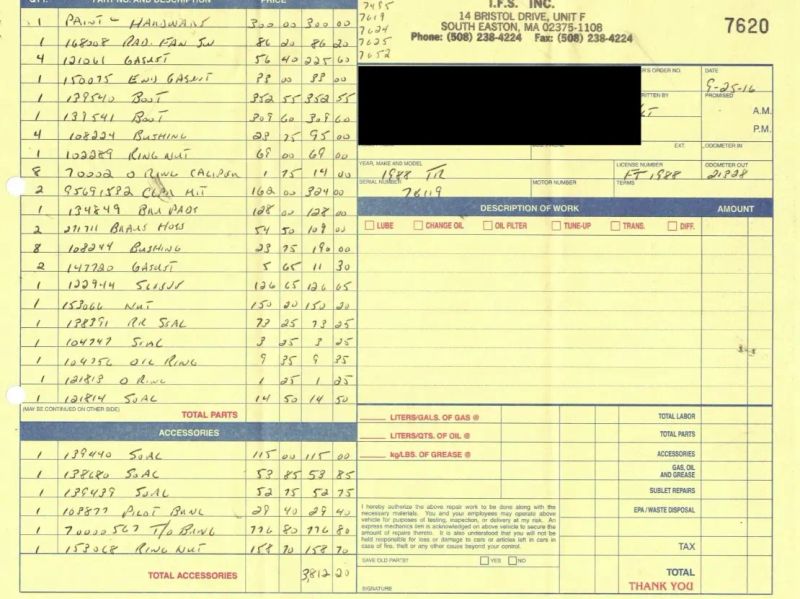 QTY. PART NO. AND DESCRIPTION PRICE
1 PAINT - HARDWARE 300 00 300 00
1 168508 RAD. FAN SW 86 20 86 20
4 121061 GASKET 56 40 225 60
1 150075 END GASKET 38 00 38 00
1 139540 BOOT 352 55 352 55
1 139541 BOOT 309 60 309 60
4 108224 BUSHING 23 75 95 00
1 102289 RING NUT 69 00 69 00
8 70002 O RING CALIPER 1 75 14 00
2 95691582 KIT 162 00 324 00
1 134849 PADS 128 00 128 00
2 BRAKE HOSE 54 50 109 00
8 108244 BUSHING 23 75 190 00
2 147720 GASKET 5 65 11 30
1 122944 126 65 126 65
1 153066 NUT 150 20 150 20
1 138391 RR SEAL 73 25 73 25
1 104747 SEAL 3 25 3 25
1 104756 OIL RING 9 35 9 35
1 121813 O RING 1 25 1 25
1 121814 SEAL 14 50 14 50
(MAY BE CONTINUED ON OTHER SIDE)
TOTAL PARTS
ACCESSORIES
1 139440 SEAL 115 00 115 00
1 138680 SEAL 53 85 53 85
1 139439 SEAL 52 75 52 75
1 108877 PILOT BRNG 29 40 29 40
1 70000567 T/O BRNG 776 80 776 80
1 153068 RING NUT 158 70 158 70
TOTAL ACCESSORIES 3,812 20
7485
7619
7624
7625
7652
T.F.S. INC.
14 BRISTOL DRIVE, UNIT F
SOUTH EASTON, MA 02375-1108
Phone: (508) 238-4224 Fax: (508) 238-4224
7620
'S ORDER NO.
DATE
9-25-16
RITTEN BY
PROMISED
A.M.
P.M.
EXT.
ODOMETER IN
YEAR, MAKE AND MODEL
1988 TR
LICENSE NUMBER
FT 1988
ODOMETER OUT
21328
SERIAL NUMBER
76119
MOTOR NUMBER
TERMS
DESCRIPTION OF WORK AMOUNT
LUBE CHANGE OIL OIL FILTER TUNE-UP TRANS. DIFF.
LITERS/GALS. OF GAS @
LITERS/QTS. OF OIL @
kg/LBS. OF GREASE @
TOTAL LABOR
TOTAL PARTS
ACCESSORIES
GAS, OIL AND GREASE
SUBLET REPAIRS
EPA / WASTE DISPOSAL
TAX
TOTAL
THANK YOU
I hereby authorize the above repair work to be done along with the
necessary materials. You and your employees may operate above
vehicle for purposes of testing, inspection, or delivery at my risk. An
express mechanics lien is acknowledged on above vehicle to secure the
amount of repairs thereto. It is also understood that you will not be
held responsible for loss or damage to cars or articles left in cars in
case of fire, theft or any other cause beyond your control.
SAVE OLD PARTS? YES NO
SIGNATURE